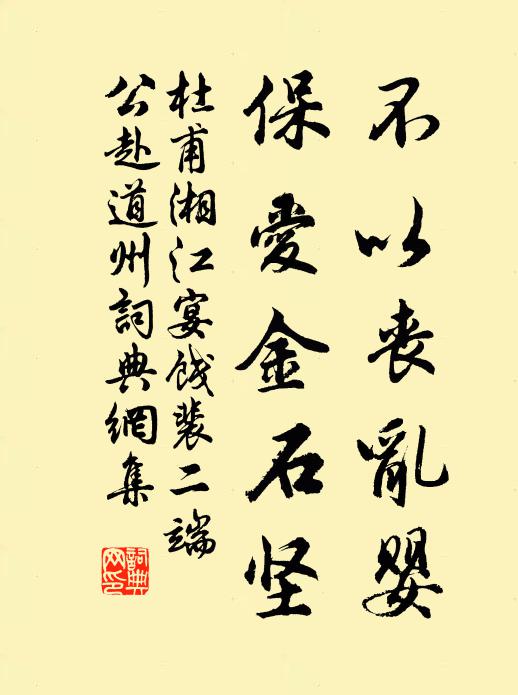 不以丧亂婴
保愛金石坚
杜甫湘江宴餞裴二端
公赴道州詞典網集
詞典网印